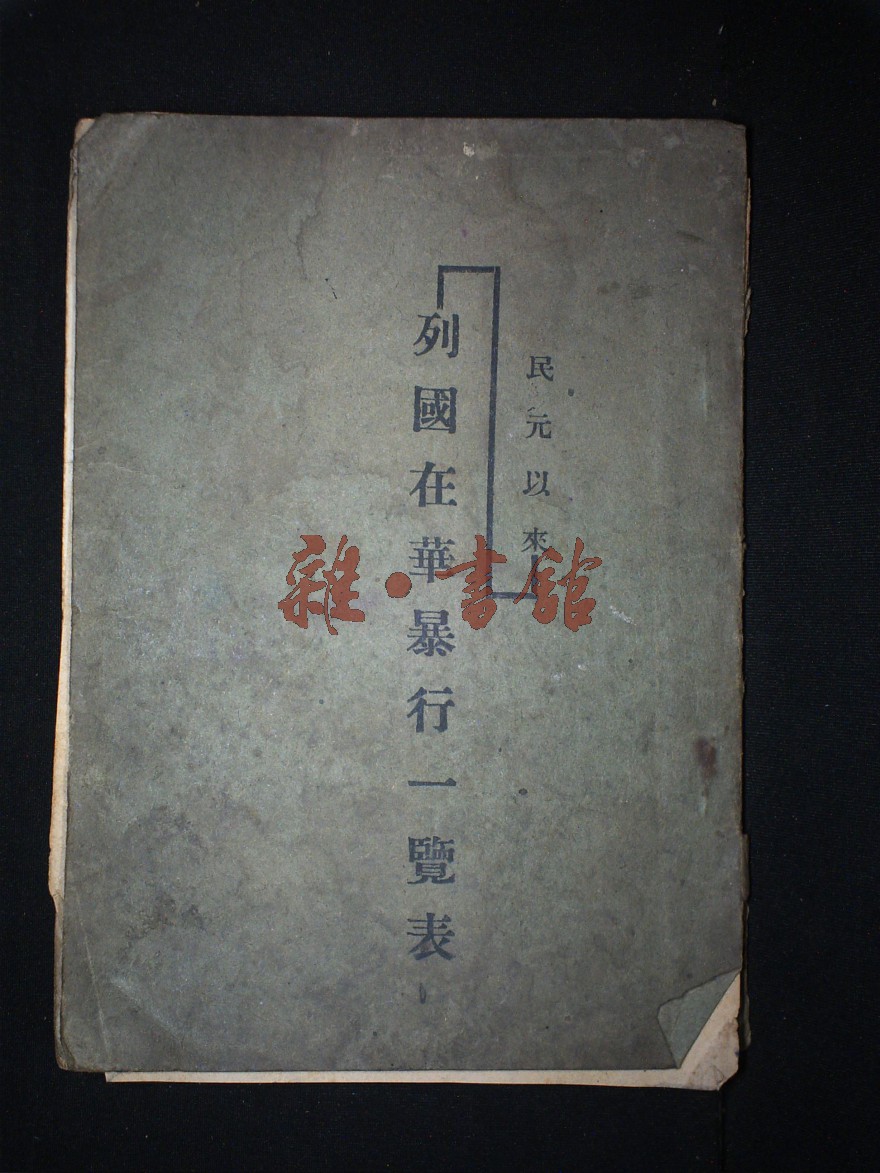 民元以來
列國在華暴行一覽表
雜·書館